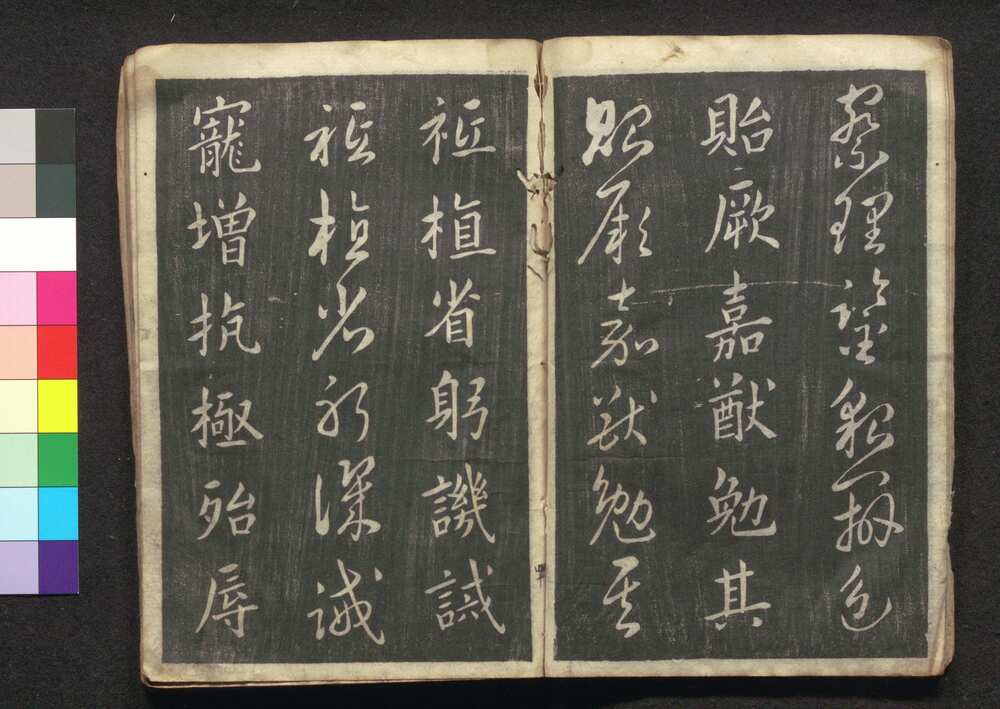 察理鑒貌辨色
貽厥嘉猷勉其
貽厥嘉猷勉其
祗植省躬譏誡
祗植省躬譏誡
寵増抗極殆辱